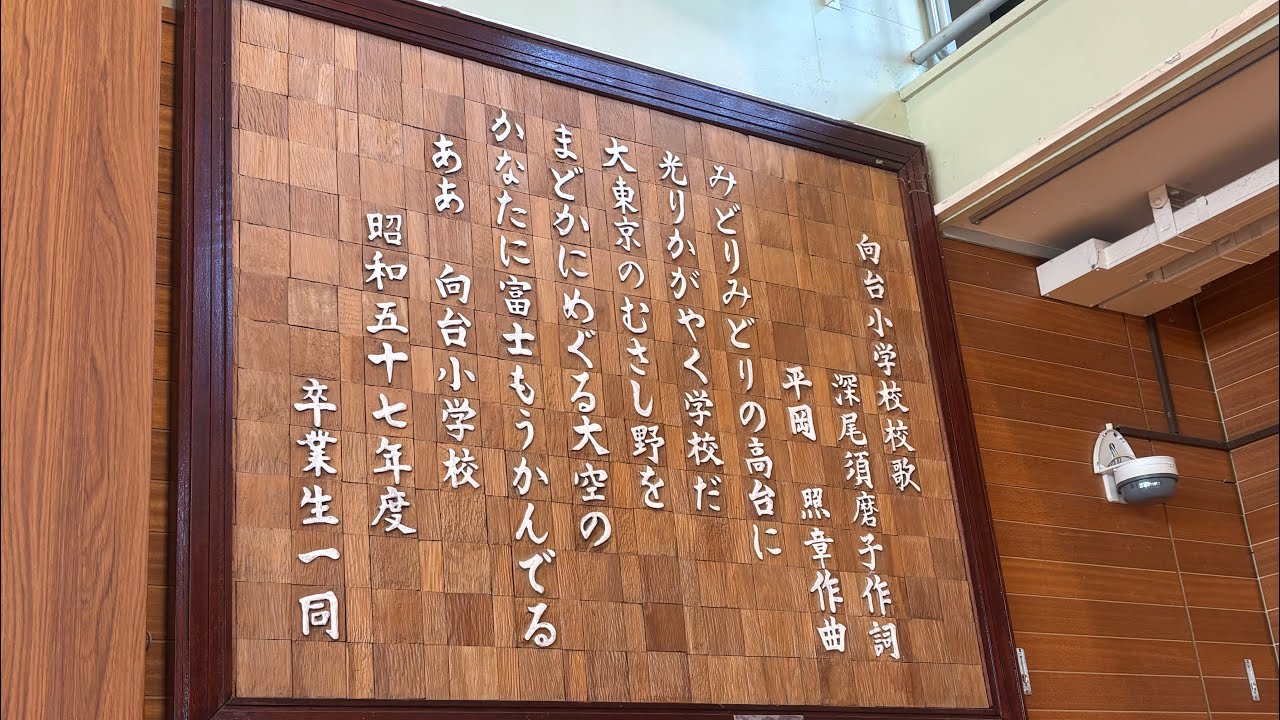 向台小学校校歌
深尾須磨子作詞
平岡 照章作曲
みどりみどりの高台に
光りかがやく学校だ
大東京のむさし野を
まどかにめぐる大空の
かなたに富士もうかんでる
ああ 向台小学校
昭和五十七年度
卒業生一同